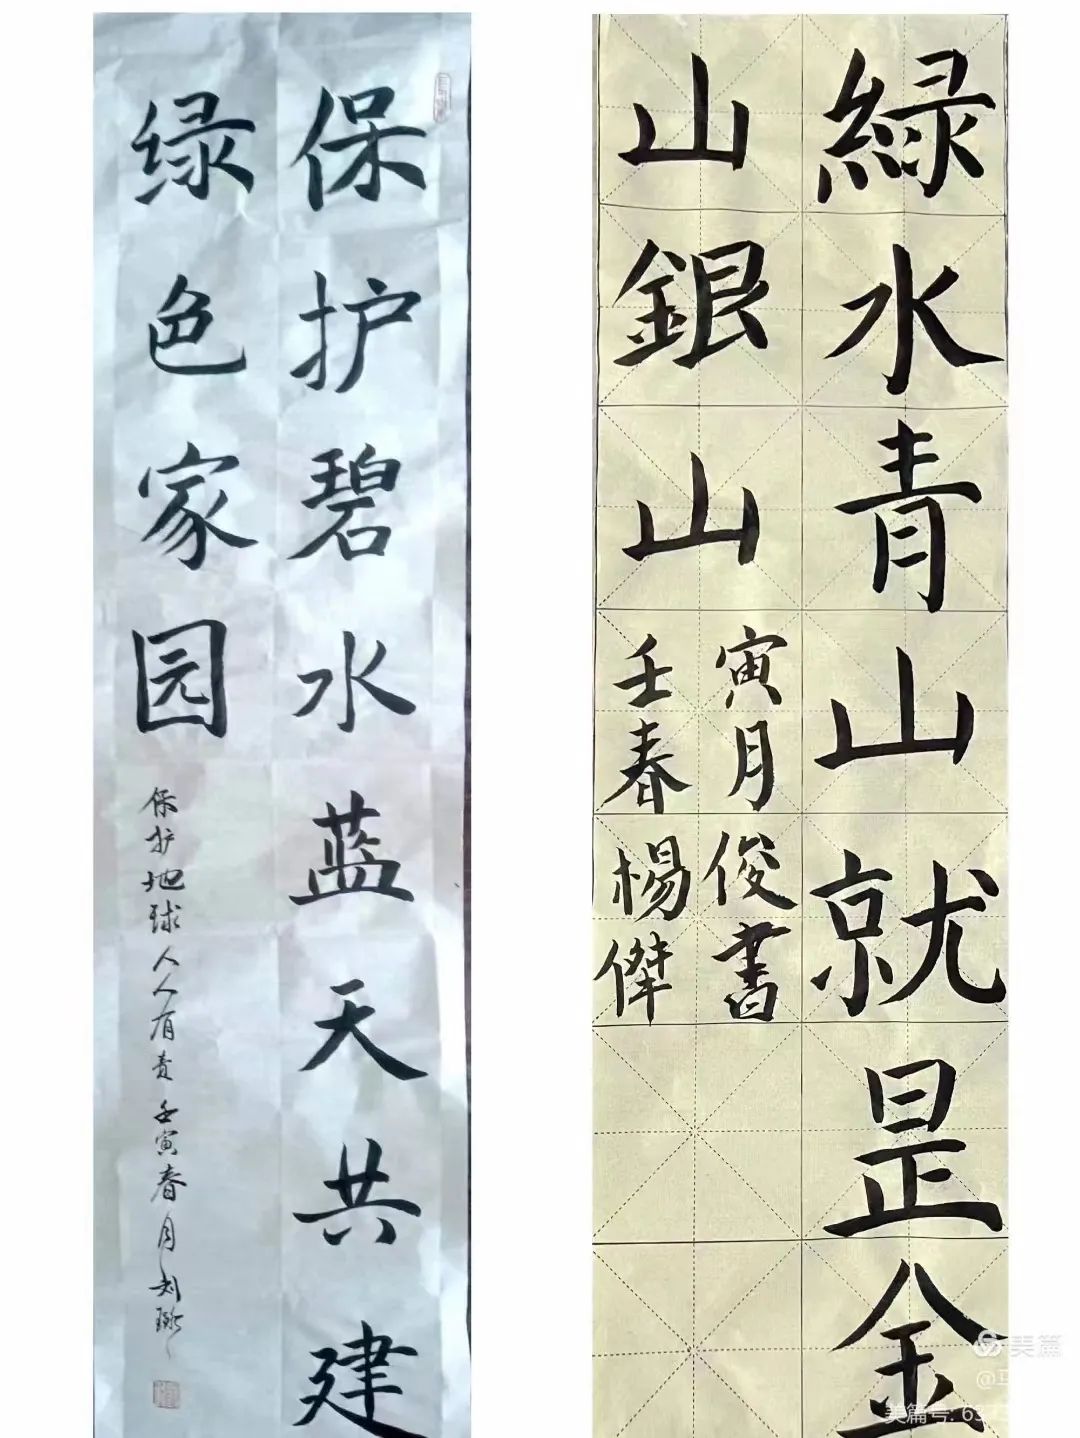 保护碧水蓝天共建
绿色家园
保护地球人人有责壬寅春月刘
緑水青山就昰金
山銀山
壬寅
春月
楊俊
傑書
美篇
美篇号: